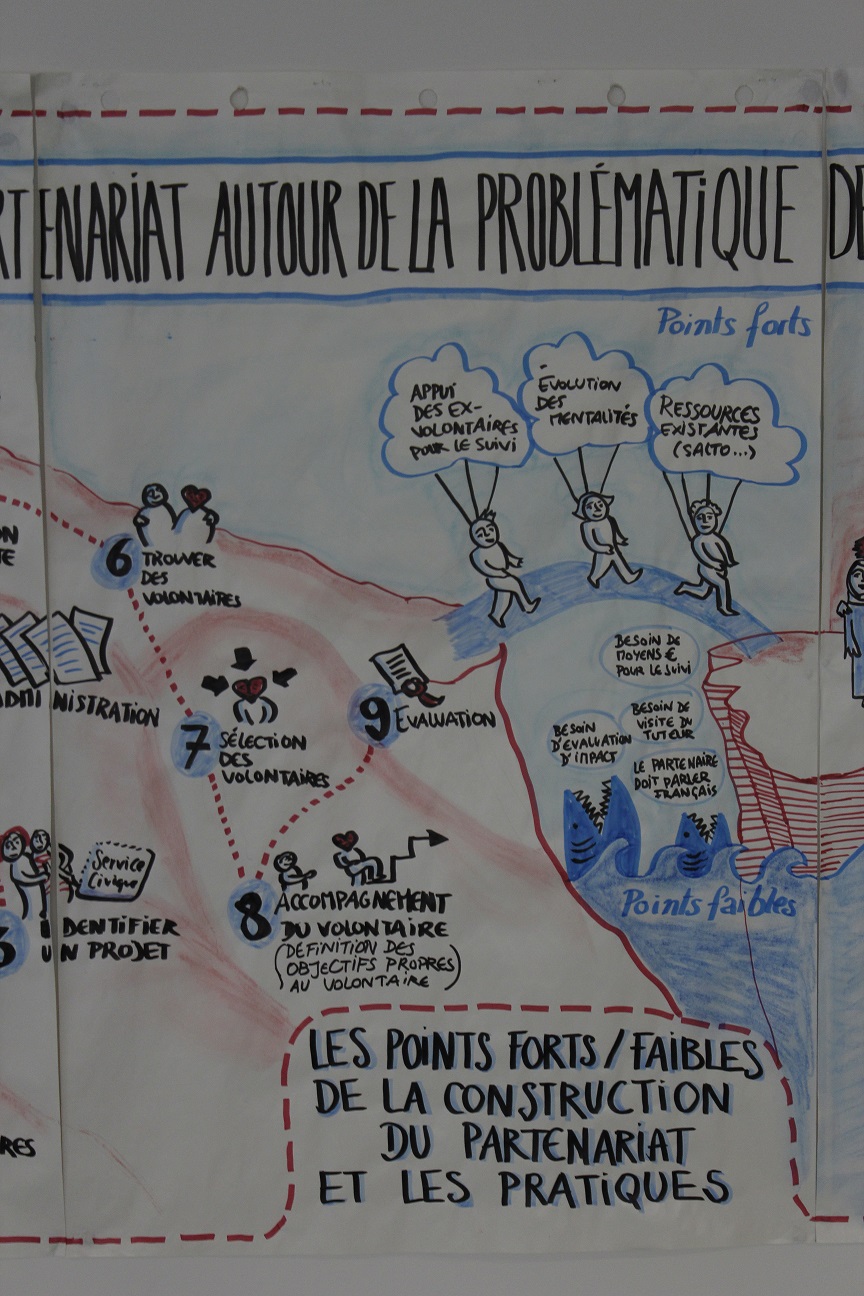 RTENARIAT AUTOUR DE LA PROBLÉMATIQUE DE
Points forts
APPUI
DES EX-
VOLONTAIRES
POUR LE SUIVI
ÉVOLUTION
DES
MENTALITÉS
RESSOURCES
EXISTANTES
(SALTO...)
ON
TE
6 TROUVER
DES
VOLONTAIRES
ADMINISTRATION
7 SÉLECTION
DES
VOLONTAIRES
9 EVALUATION
BESOIN DE
MOYENS €
POUR LE SUIVI
BESOIN DE
VISITE DU
TUTEUR
BESOIN
D'EVALUATION
D'IMPACT
LE PARTENAIRE
DOIT PARLER
FRANÇAIS
Points faibles
Service
Civique
IDENTIFIER
UN PROJET
8 ACCOMPAGNEMENT
DU VOLONTAIRE
(DEFINITION DES
OBJECTIFS PROPRES
AU VOLONTAIRE)
RES
LES POINTS FORTS / FAIBLES
DE LA CONSTRUCTION
DU PARTENARIAT
ET LES PRATIQUES